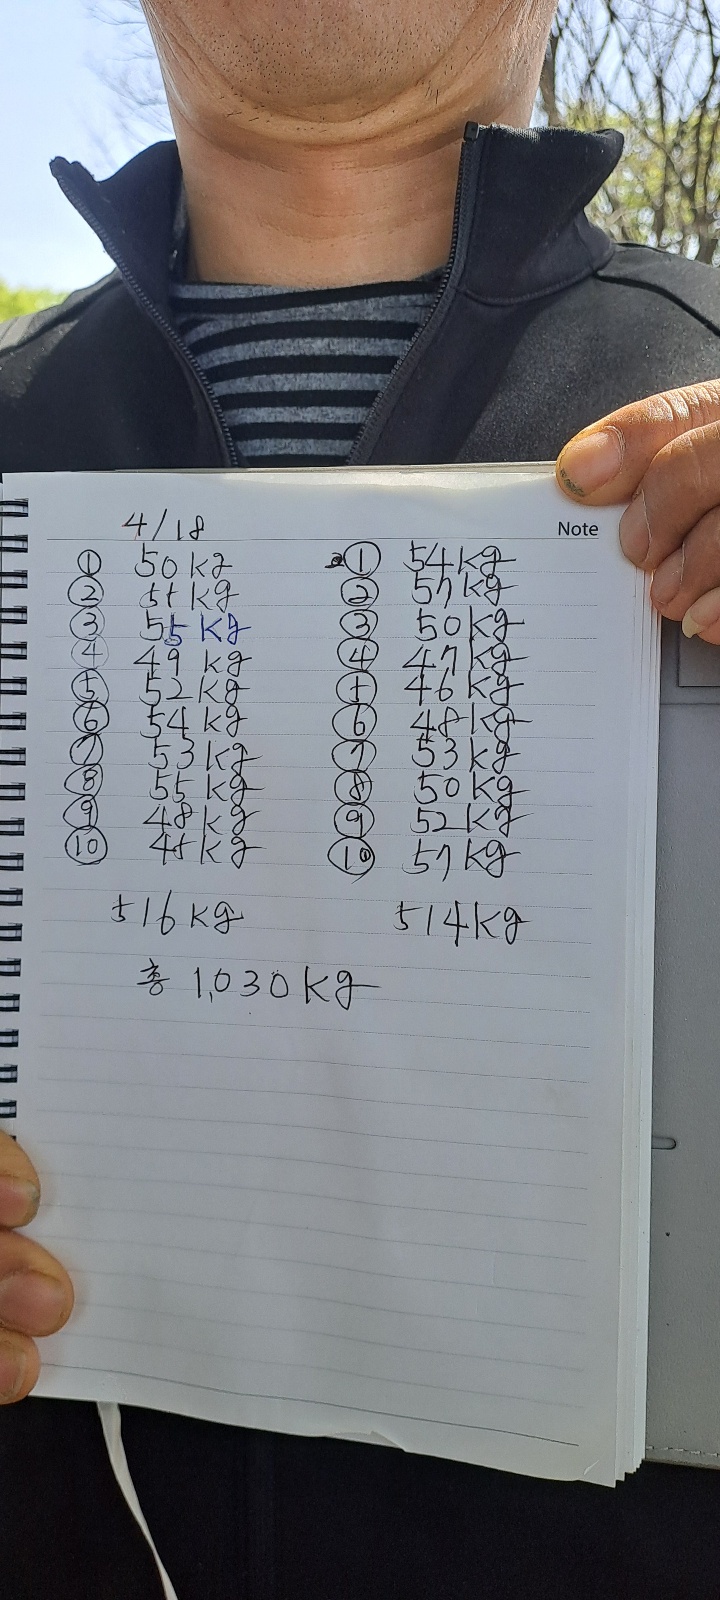 Note
4/18
① 50kg ① 54kg
② 51kg ② 57kg
③ 55kg ③ 50kg
④ 49kg ④ 47kg
⑤ 52kg ⑤ 46kg
⑥ 54kg ⑥ 48kg
⑦ 53kg ⑦ 53kg
⑧ 55kg ⑧ 50kg
⑨ 48kg ⑨ 52kg
⑩ 48kg ⑩ 57kg
516kg 514kg
총 1,030kg